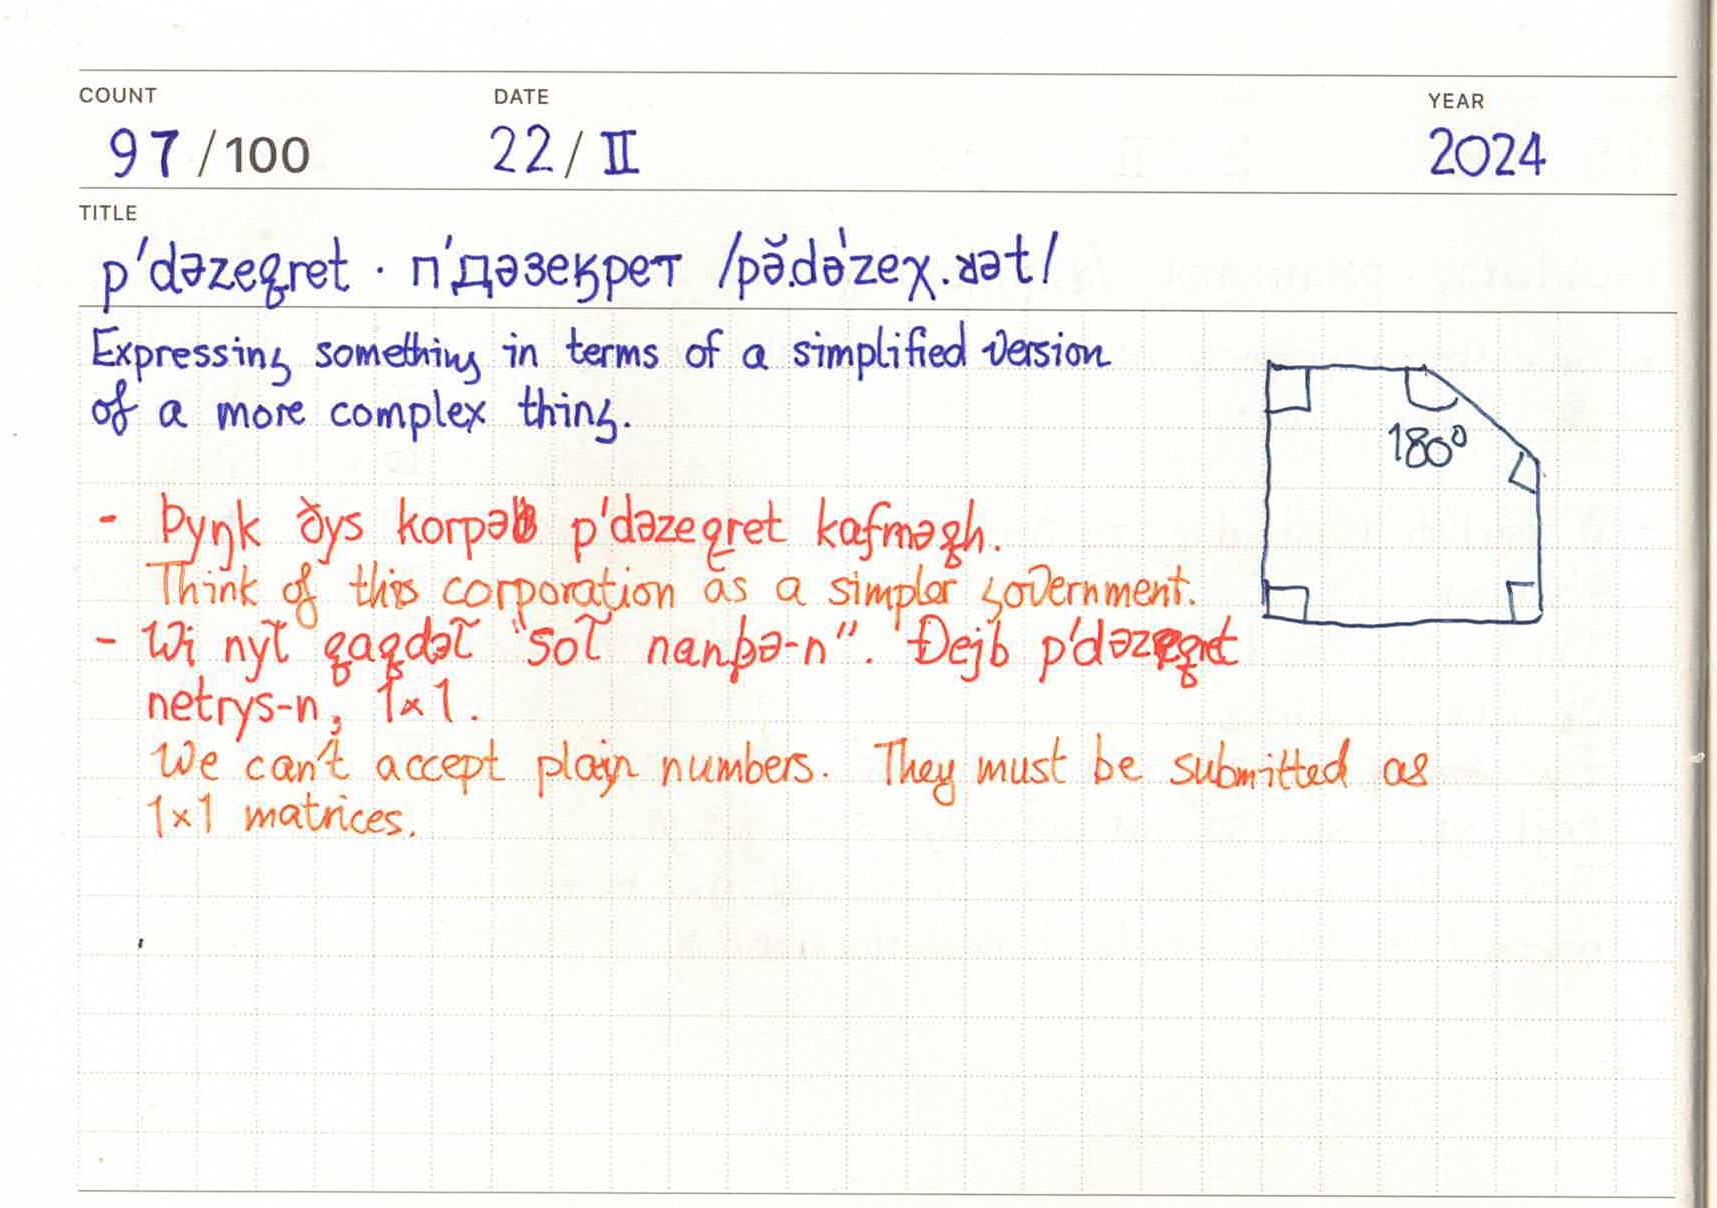 COUNT DATE YEAR
97 /100 22 / II 2024
TITLE
p'dəzeqret · п'дәзеӄрет /pə̆.də'zeχ.ʁət/
Expressing something in terms of a simplified version
of a more complex thing.
180°
- Þyŋk ðys korpəb p'dəzeqret kafməqh.
Think of this corporation as a simpler government.
- Wi nyt qaqdət "sot nanþə-n". Ðejb p'dəzeqret
netrys-n, 1×1.
We can't accept plain numbers. They must be submitted as
1×1 matrices.